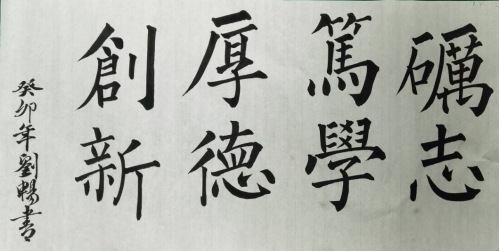 礪志
篤學
厚德
創新
癸卯年劉暢書